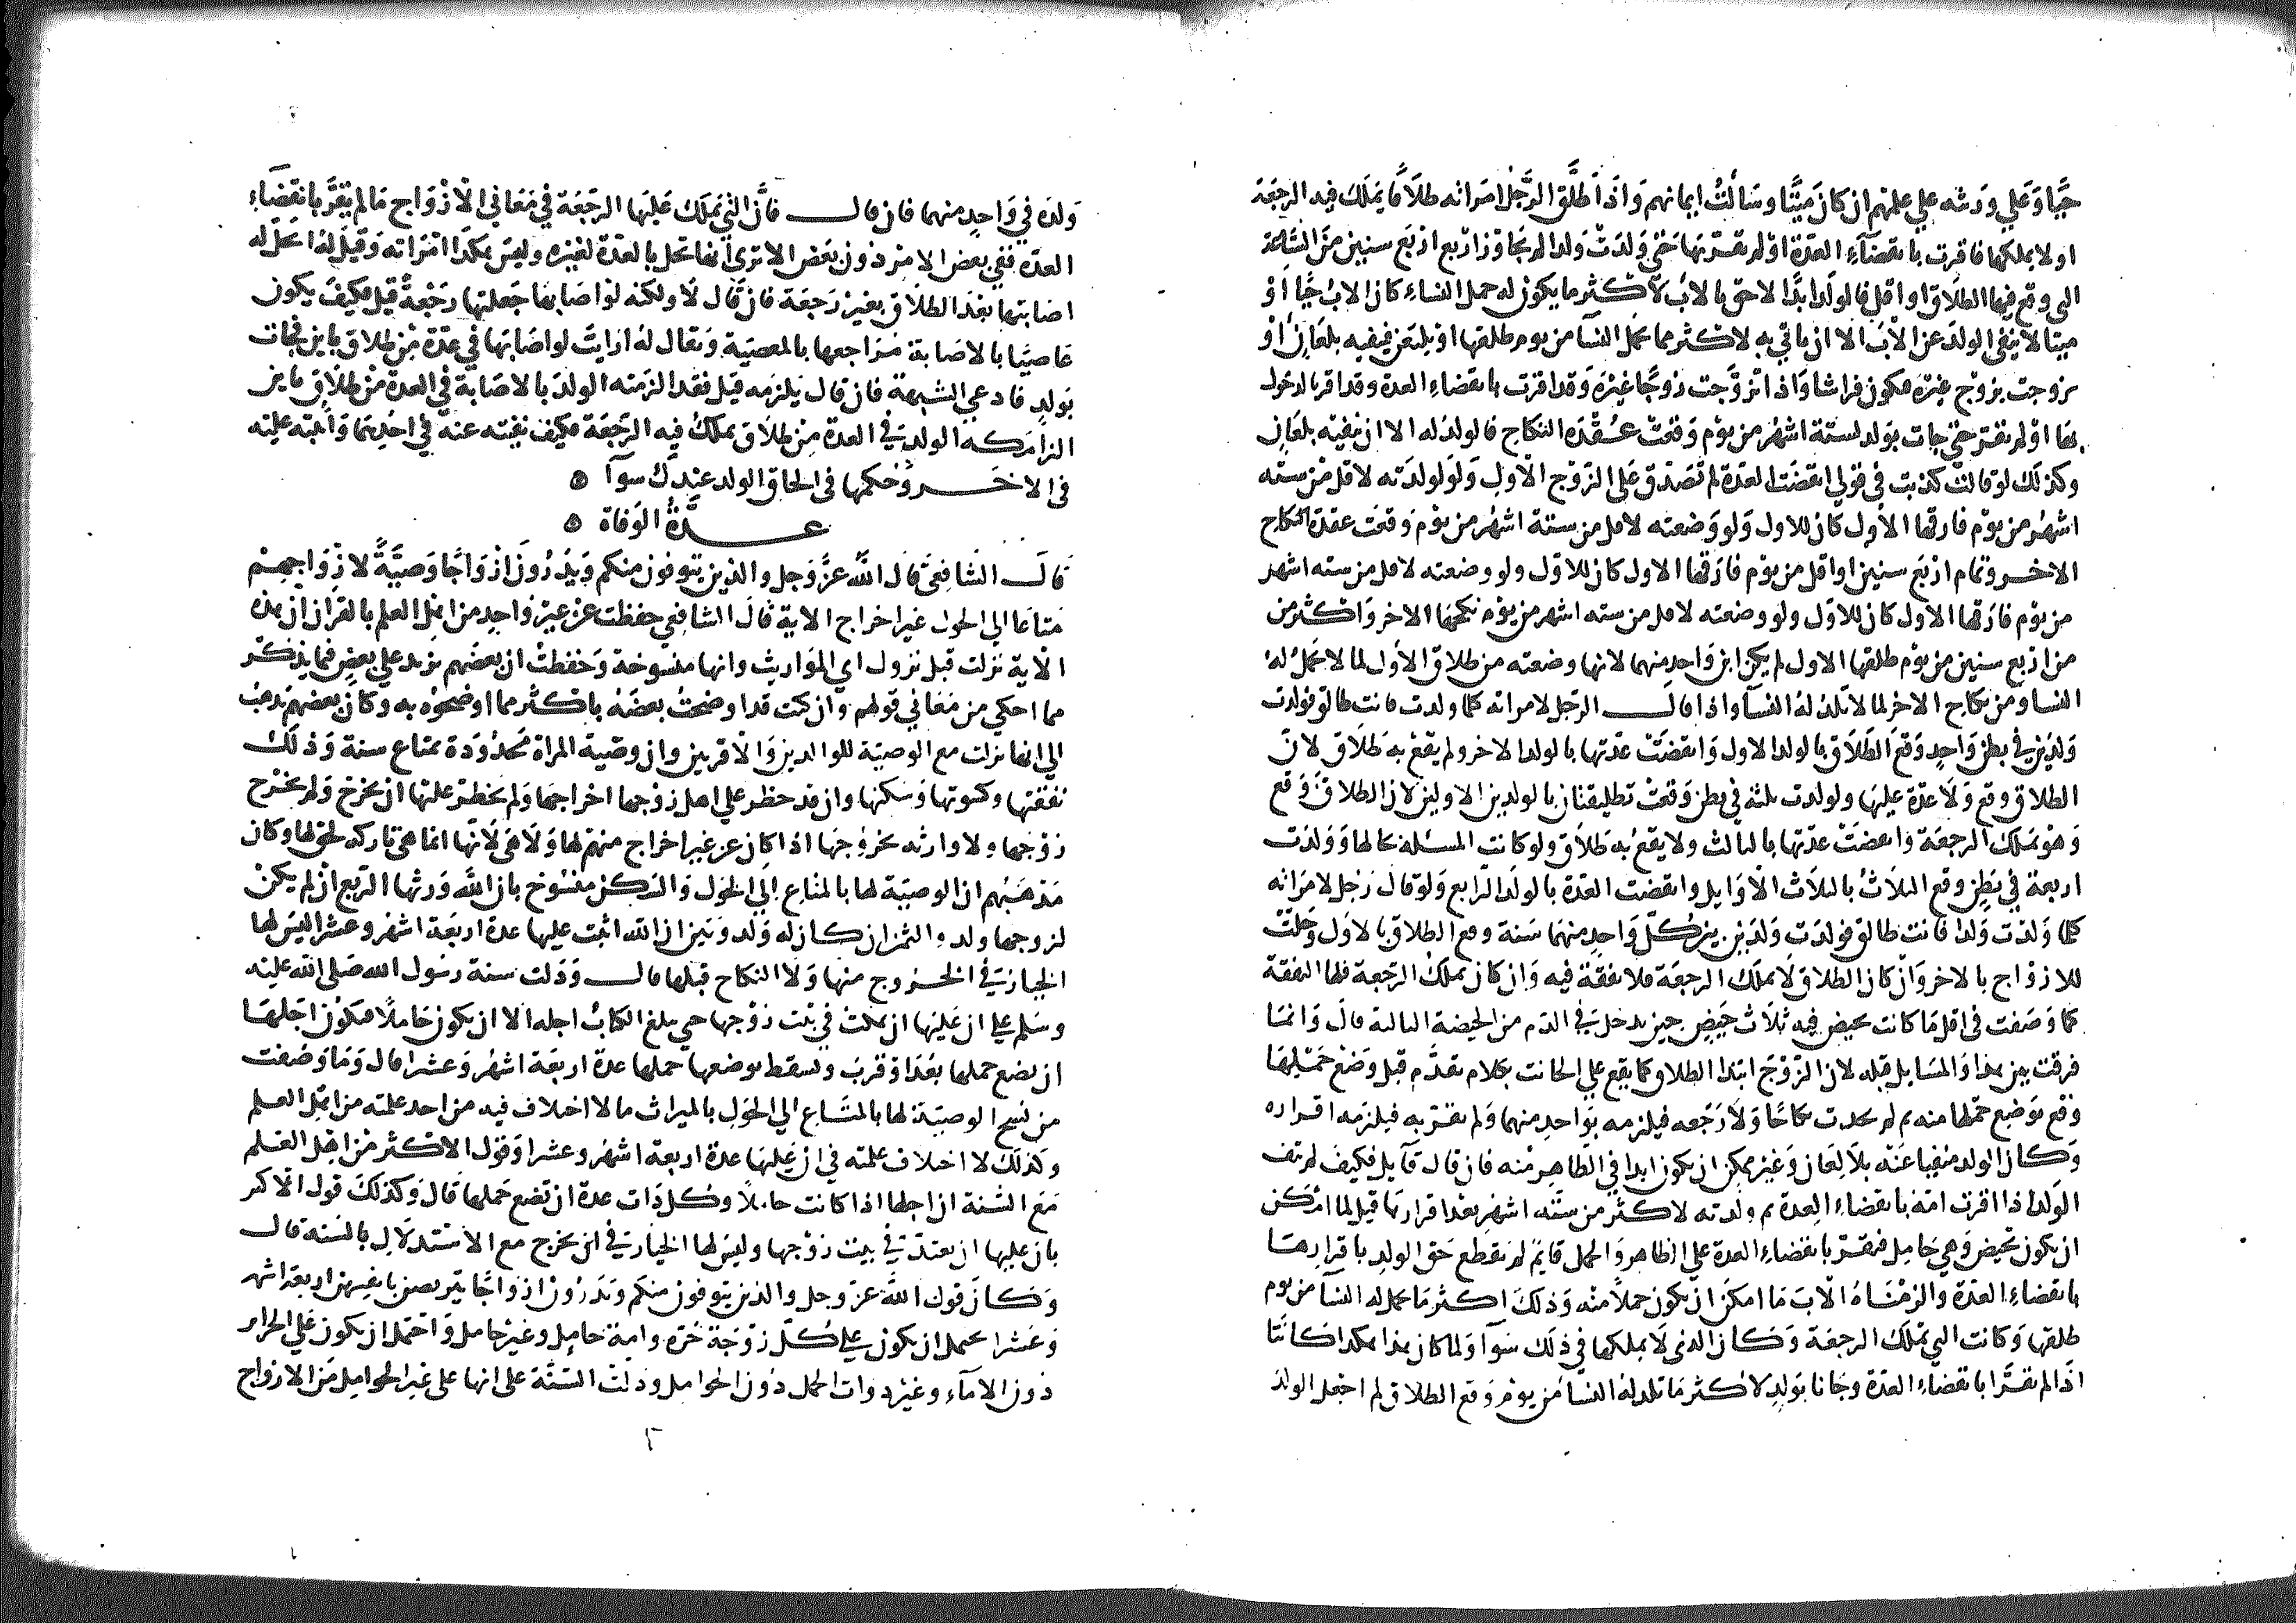 حيا وعلي ورثته علي علمهم ان كان ميتا وسالت ايمانهم واذا طلق الرجل امراته طلاقا يملك فيه الرجعة
او لا يملكها فاقرت بانقضاء العدة او لم تقر بها حتي ولدت ولدا لم تجاوز اربع سنين من الساعة
التي وقع فيها الطلاق او اقل فالولد ابدا لاحق بالاب لاكثر ما يكون له حمل النساء كان الاب حيا او
ميتا لا ينفي الولد عن الاب الا ان ياتي به لاكثر مما تحمل النسا من يوم طلقها او يلتعن فينفيه بلعان او
تزوجت بزوج غيره فيكون فراشا واذا تزوجت زوجا غيره وقد اقرت بانقضاء العدة وقد اقر بالدخول
بها او لم تقر حتي جات بولد لستة اشهر من يوم وقعت عقدة النكاح فالولد له الا ان ينفيه بلعان
وكذلك لو قالت كذبت في قولي انقضت العدة لم تصدق علي الزوج الاول ولو ولدته لاقل من ستة
اشهر من يوم فارقها الاول كان للاول ولو وضعته لاقل من ستة اشهر من يوم وقعت عقدة النكاح
الاخر وتمام اربع سنين او اقل من يوم فارقها الاول كان للاول ولو وضعته لاقل من ستة اشهر
من يوم فارقها الاول كان للاول ولو وضعته لاقل من سته اشهر من يوم نكحها الاخر واكثر من
من اربع سنين من يوم طلقها الاول لم يكن ابن واحد منهما لانها وضعته من طلاق الاول لما لا تحمل له
النسا ومن نكاح الاخر لما لا تلد له النسا واذا قال الرجل لامراته كلما ولدت فانت طالق فولدت
ولدين في بطن واحد وقع الطلاق بالولد الاول وانقضت عدتها بالولد الاخر ولم يقع به طلاق لان
الطلاق وقع ولا عدة عليها ولو ولدت ثلثه في بطن وقعت تطليقتان بالولدين الاولين لان الطلاق وقع
وهو يملك الرجعة وانقضت عدتها بالثالث ولا يقع به طلاق ولو كانت المسئلة بحالها وولدت
اربعة في بطن وقع الثلاث بالثلاث الاوايل وانقضت العدة بالولد الرابع ولو قال رجل لامراته
كلما ولدت ولدا فانت طالق فولدت ولدين بين كل واحد منهما سنة وقع الطلاق بالاول وحلت
للازواج بالاخر وان كان الطلاق لا يملك الرجعة فلا نفقة فيه وان كان يملك الرجعة فلها النفقة
كما وصفت في اقل ما كانت تحيض فيه ثلاث حيض حين تدخل في الدم من الحيضة الثالثة قال وانما
فرقت بين هذا والمسايل قبله لان الزوج ابتدا الطلاق كما يقع علي الحانث بكلام تقدم قبل وضع حملها
وقع بوضع حملها منه ثم لم يحدث نكاحا ولا رجعه فيلزمه بواحد منهما ولم يقر به فيلزمه اقراره
وكان الولد منفيا عنه بلا لعان وغير ممكن ان يكون ابدا في الظاهر منه فان قال قايل فكيف لم تنف
الولد اذا اقرت امه بانقضاء العدة ثم ولدته لاكثر من ستة اشهر بعد اقرارها قيل لما امكن
ان يكون تحيض وهي حامل فتقر بانقضاء العدة علي الظاهر والحمل قايم لم نقطع حق الولد باقرارها
بانقضاء العدة والزمناه الاب ما امكن ان يكون حملا منه وذلك اكثر ما تحمل له النسا من يوم
طلقها وكانت التي تملك الرجعة وكان الذي لا يملكها في ذلك سوآ ولما كان هذا هكذا كانتا
اذا لم تقرا بانقضاء العدة وجاتا بولد لاكثر ما تلد له النسا من يوم وقع الطلاق لم اجعل الولد
ولده في واحد منهما فان قال فان التي يملك عليها الرجعة في معاني الازواج ما لم تقر بانقضاء
العدة ففي بعض الامر دون بعض الا تري انها تحل بالعدة لغيره وليس هكذا امراته وقيل له اتحل له
اصابتها بعد الطلاق بغير رجعة فان قال لا ولكنه لو اصابها جعلتها رجعة قيل فكيف يكون
عاصيا بالاصابة مراجعها بالمعصية ويقال له ارايت لو اصابها في عدة من طلاق باين فجات
بولد فادعي الشبهة فان قال يلزمه قيل فقد الزمته الولد بالاصابة في العدة من طلاق باين
الزامكه الولد في العدة من طلاق يملك فيه الرجعة فكيف نفيته عنه في احديهما واثبته عليه
في الاخر وحكمهما في الحاق الولد عندك سوآ ه
عدة الوفاة ه
قال الشافعي قال الله عز وجل والذين يتوفون منكم ويذرون ازواجا وصية لازواجهم
متاعا الي الحول غير اخراج الاية قال الشافعي حفظت عن غير واحد من اهل العلم بالقران ان هذه
الاية نزلت قبل نزول اي المواريث وانها منسوخة وحفظت ان بعضهم يزيد علي بعض فيما يذكر
مما احكي من معاني قولهم وان كنت قد اوضحت بعضه باكثر مما اوضحوه به وكان بعضهم يذهب
الي انها نزلت مع الوصية للوالدين والاقربين وان وصية المراة محدودة بمتاع سنة وذلك
نفقتها وكسوتها وسكنها وان قد حظر علي اهل زوجها اخراجها ولم يحظر عليها ان تخرج ولم يخرج
زوجها ولا وارثه بخروجها اذا كان عن غير اخراج منهم لها ولا هي لانها انما هي تاركه لحق لها وكان
مذهبهم ان الوصية لها بالمتاع الي الحول والسكن منسوخ بان الله ورثها الربع ان لم يكن
لزوجها ولد والثمن ان كان له ولد وبين ان الله اثبت عليها عدة اربعة اشهر وعشرا ليس لها
الخيار في الخروج منها ولا النكاح قبلها قال ودلت سنة رسول الله صلى الله عليه
وسلم علي ان عليها ان تمكث في بيت زوجها حتي يبلغ الكتاب اجله الا ان يكون حاملا فيكون اجلها
ان تضع حملها بعد او قرب ويسقط بوضعها حملها عدة اربعة اشهر وعشرا قال وما وصفت
من نسخ الوصية لها بالمتاع الي الحول بالميراث ما لا اختلاف فيه من احد علمته من اهل العلم
وكذلك لا اختلاف علمته في ان عليها عدة اربعة اشهر وعشرا وقول الاكثر من اهل العلم
مع السنة ان اجلها اذا كانت حاملا وكل ذات عدة ان تضع حملها قال وكذلك قول الاكثر
بان عليها ان تعتد في بيت زوجها وليس لها الخيار في ان تخرج مع الاستدلال بالسنة قال
وكان قول الله عز وجل والذين يتوفون منكم ويذرون ازواجا يتربصن بانفسهن اربعة اشهر
وعشرا يحتمل ان يكون علي كل زوجة حرة وامة حامل وغير حامل واحتمل ان يكون علي الحراير
دون الامآء وغير ذوات الحمل دون الحوامل ودلت السنة على انها على غير الحوامل من الازواج